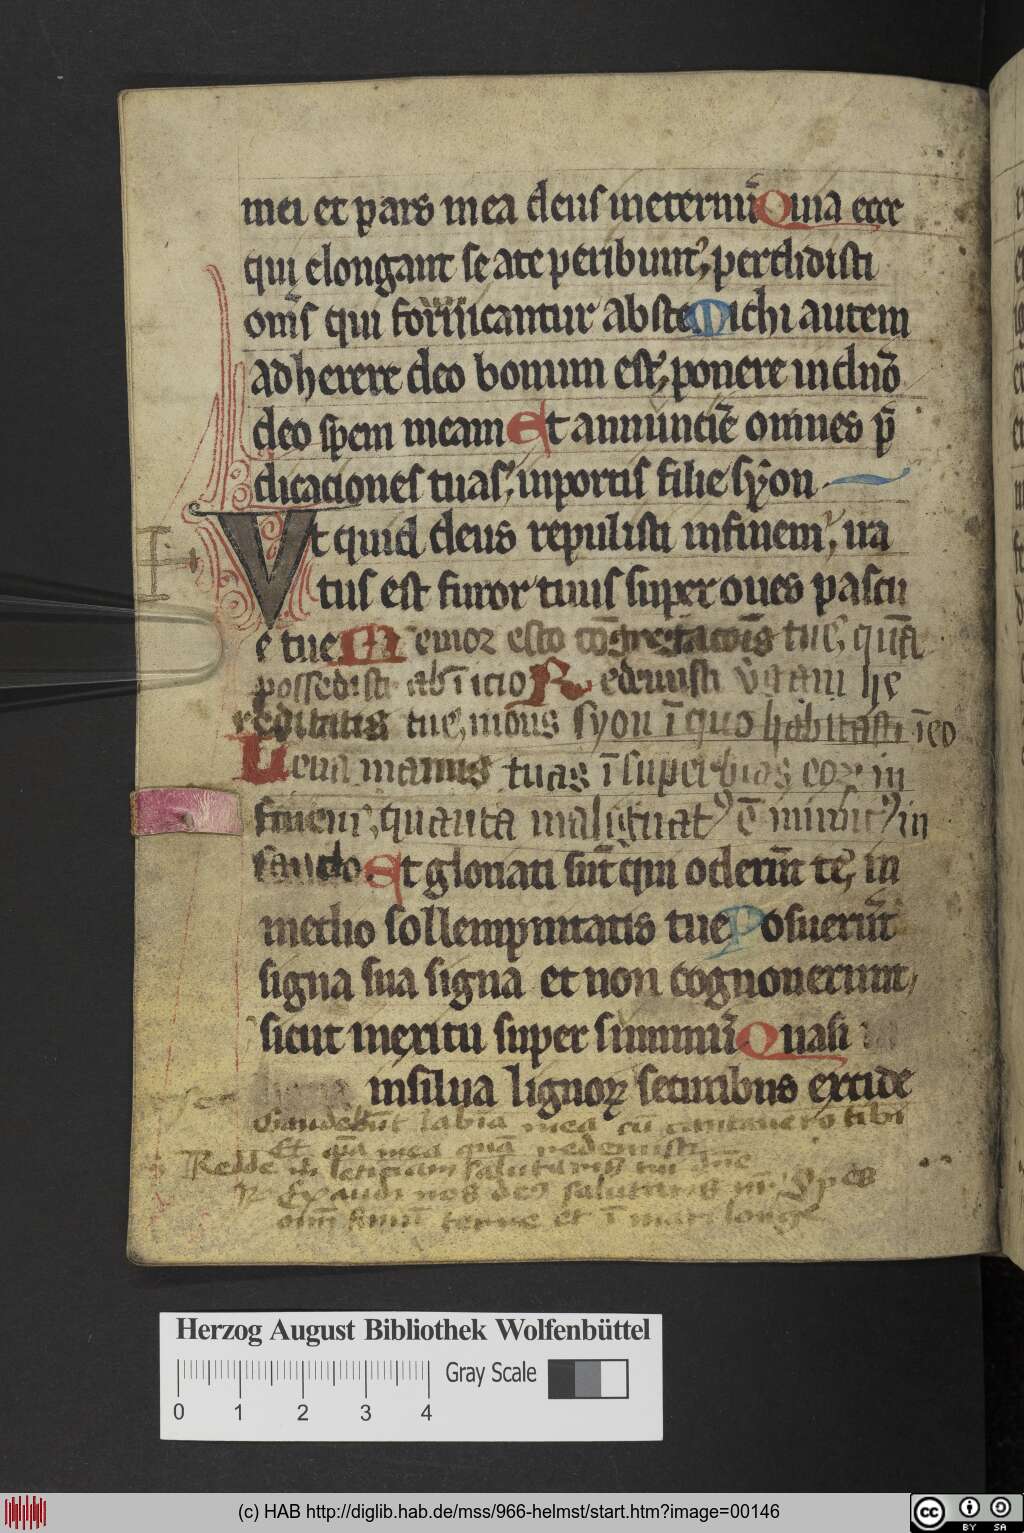 mei et pars mea deus ineternū Quia ecce
qui elongant se ate peribunt, perdidisti
om̄s qui fornicantur abs te Michi autem
adherere deo bonum est, ponere in dn̄o
deo spem meam Et annunciē omnes p̄
dicaciones tuas, inportis filie syon
Vt quid deus repulisti infinem, ira
tus est furor tuus super oues pascu
e tue Memor esto cōgregac̄ois tue, quā
possedisti ab īicio Redemisti v̄gam he
reditatis tue, mons syon ī quo habitasti ī eo
Leua manus tuas ī superbias eoꝝ in
finem, quanta malignatꝰ ē inimicꝰ in
sancto. Et gloriati sūt qui oderūt te, in
medio sollempnitatis tue Posuerūt
signa sua signa et non cognouerunt,
sicut inexitu super summū Quasi
insilua lignoꝝ securibus excide
Gaudebūt labia mea cū cantauero tibi
Et aīa mea quā redemisti
Redde m̄ leticiam salutaris tui dn̄e
Exaudi nos deꝰ salutaris nr̄ spes
om̄ finiū terre et ī mari longe
Herzog August Bibliothek Wolfenbüttel
Gray Scale
0 1 2 3 4
(c) HAB http://diglib.hab.de/mss/966-helmst/start.htm?image=00146
cc BY SA